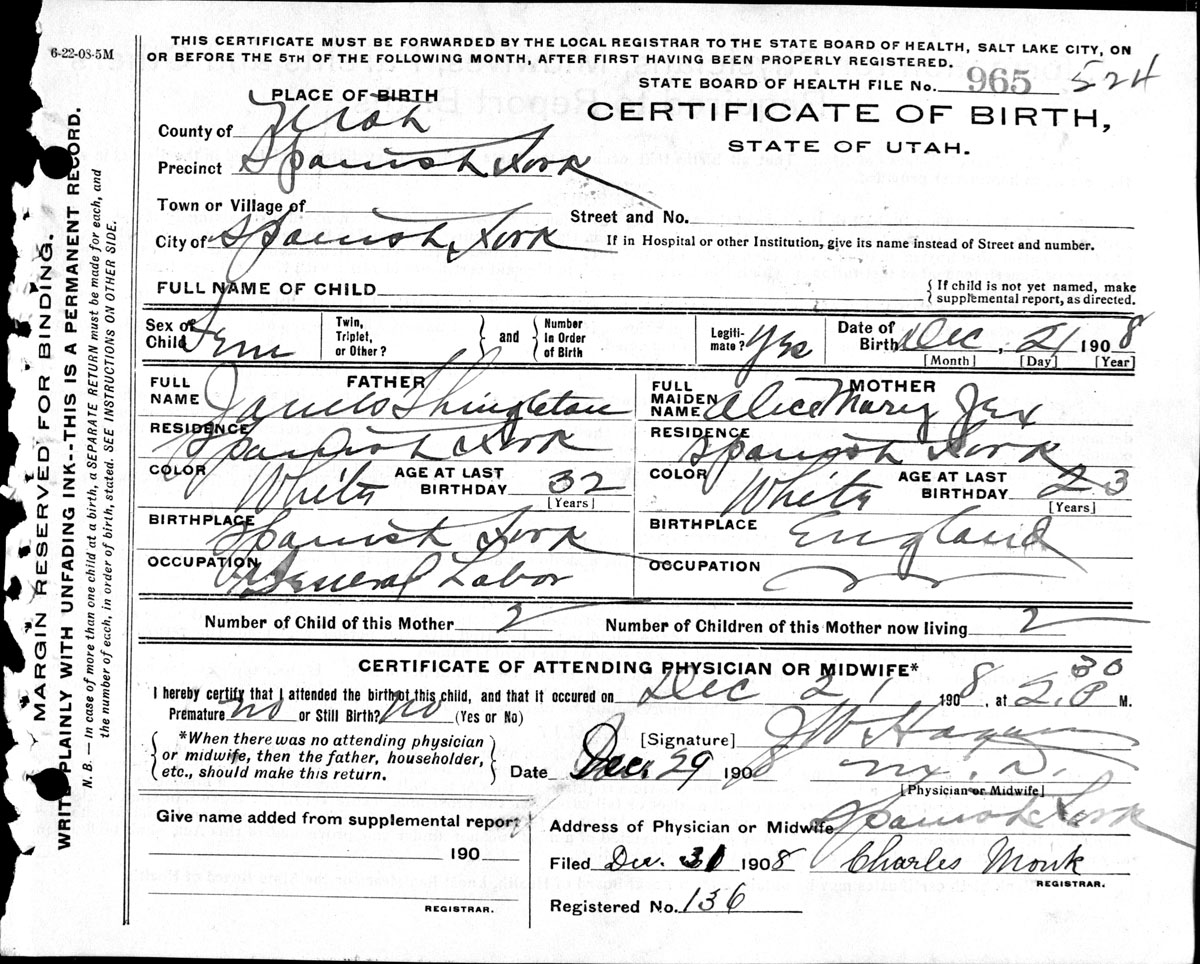 6-22-08-5M
THIS CERTIFICATE MUST BE FORWARDED BY THE LOCAL REGISTRAR TO THE STATE BOARD OF HEALTH, SALT LAKE CITY, ON
OR BEFORE THE 5TH OF THE FOLLOWING MONTH, AFTER FIRST HAVING BEEN PROPERLY REGISTERED.
STATE BOARD OF HEALTH FILE No. 965 524
PLACE OF BIRTH
CERTIFICATE OF BIRTH,
STATE OF UTAH.
County of Utah
Precinct Spanish Fork
Town or Village of
Street and No.
City of Spanish Fork
If in Hospital or other Institution, give its name instead of Street and number.
FULL NAME OF CHILD
{ If child is not yet named, make
supplemental report, as directed.
Sex of Child Fem
Twin, Triplet, or Other? } and { Number in Order of Birth
Legitimate? Yes
Date of Birth Dec, 21 1908
[Month] [Day] [Year]
FATHER
FULL NAME James Thingleton
RESIDENCE Spanish Fork
COLOR White AGE AT LAST BIRTHDAY 32
[Years]
BIRTHPLACE Spanish Fork
OCCUPATION General Labor
MOTHER
FULL MAIDEN NAME Alice Mary Jex
RESIDENCE Spanish Fork
COLOR White AGE AT LAST BIRTHDAY 23
[Years]
BIRTHPLACE England
OCCUPATION
Number of Child of this Mother 2 Number of Children of this Mother now living 2
CERTIFICATE OF ATTENDING PHYSICIAN OR MIDWIFE*
I hereby certify that I attended the birth of this child, and that it occured on Dec 21, 1908, at 2.30 P M.
Premature no or Still Birth? no (Yes or No)
{ *When there was no attending physician
or midwife, then the father, householder,
etc., should make this return. }
[Signature] J W Hagan
M. D.
Date Dec. 29 1908
[Physician or Midwife]
Give name added from supplemental report
190
REGISTRAR.
Address of Physician or Midwife Spanish Fork
Filed Dec. 31 1908 Charles Monk
REGISTRAR.
Registered No. 136
MARGIN RESERVED FOR BINDING.
WRITE PLAINLY WITH UNFADING INK--THIS IS A PERMANENT RECORD.
N. B. — In case of more than one child at a birth, a SEPARATE RETURN must be made for each, and
the number of each, in order of birth, stated. SEE INSTRUCTIONS ON OTHER SIDE.